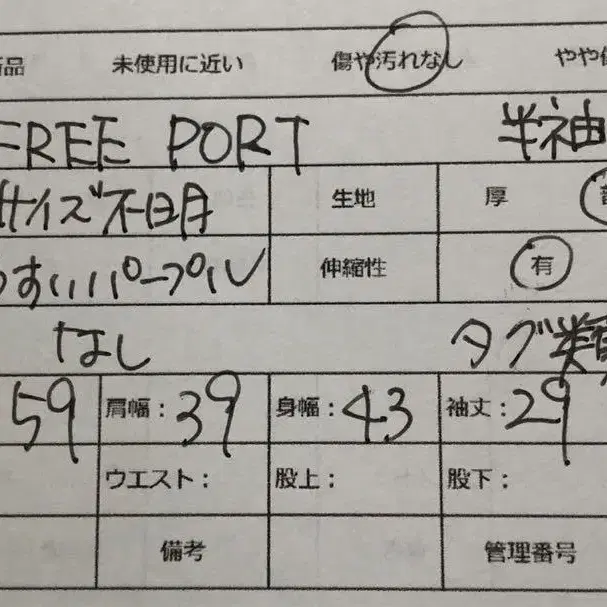 品 未使用に近い 傷や汚れなし やや
FREE PORT 半袖
サイズ不明 生地 厚
うすいパープル 伸縮性 有
なし タグ類
59 肩幅：39 身幅：43 袖丈：29
ウエスト： 股上： 股下：
備考 管理番号